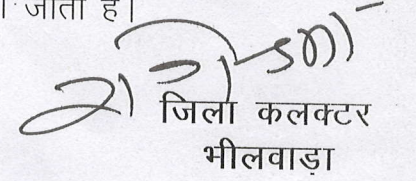 जाता है।
जिला कलक्टर
भीलवाड़ा